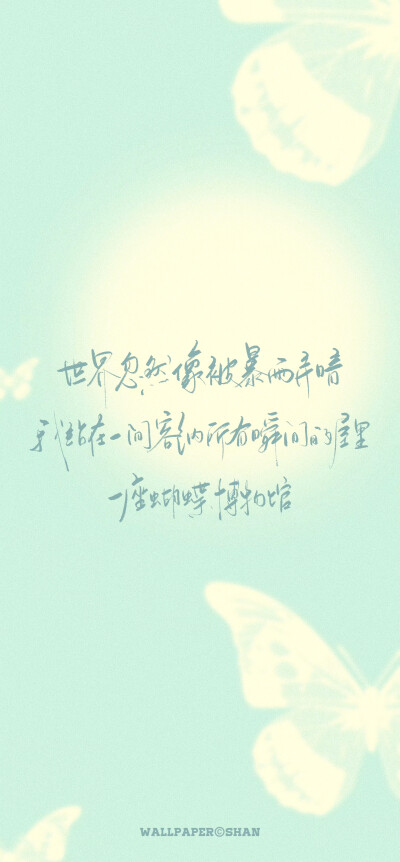 世界忽然像被暴雨弄暗
我站在一间容纳所有瞬间的屋里
一座蝴蝶博物馆
WALLPAPER©SHAN